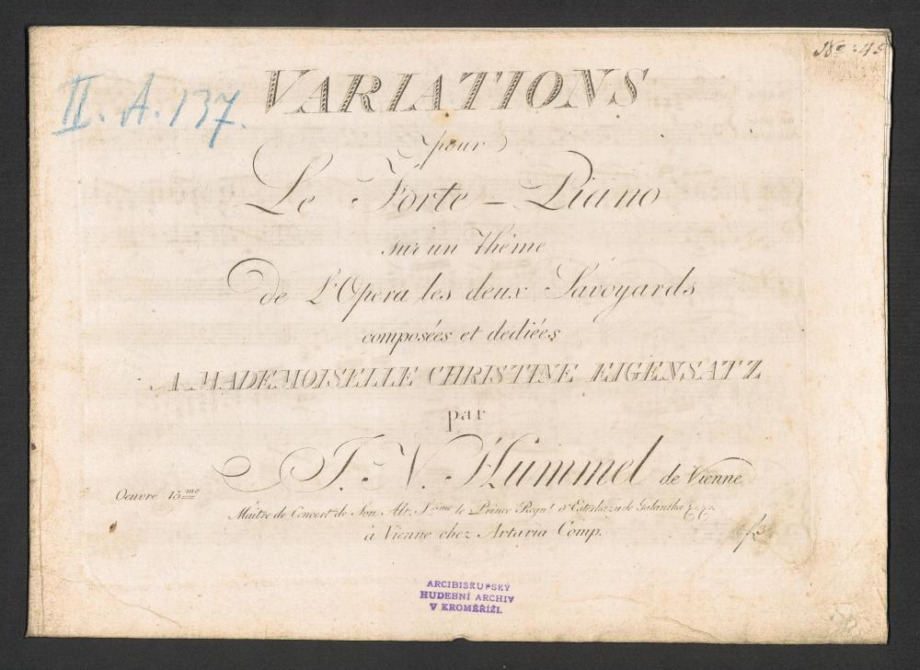 No: 45
II. A. 137.
VARIATIONS
pour
Le Forte-Piano
sur un Thême
de L'Opera les deux Savoyards
composées et dediées
A MADEMOISELLE CHRISTINE EIGENSATZ
par
J. N. Hummel de Vienne
Oeuvre 15me
Maître de Concert de Son Alt. Sme le Prince Regnt d'Esterhazy de Galantha
à Vienne chez Artaria Comp.
ARCIBISKUPSKÝ
HUDEBNÍ ARCHIV
V KROMĚŘÍŽI.